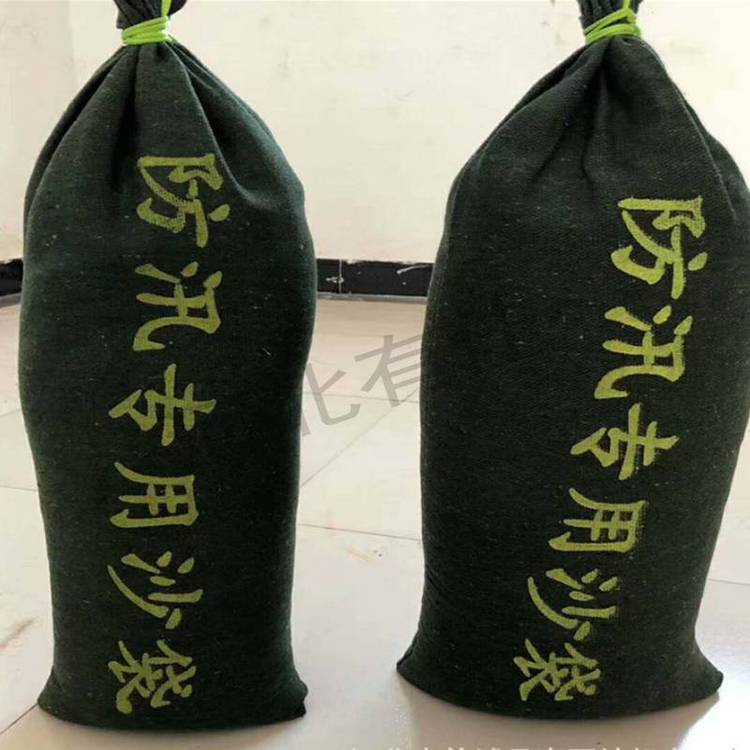 防汛专用沙袋
防汛专用沙袋
化有